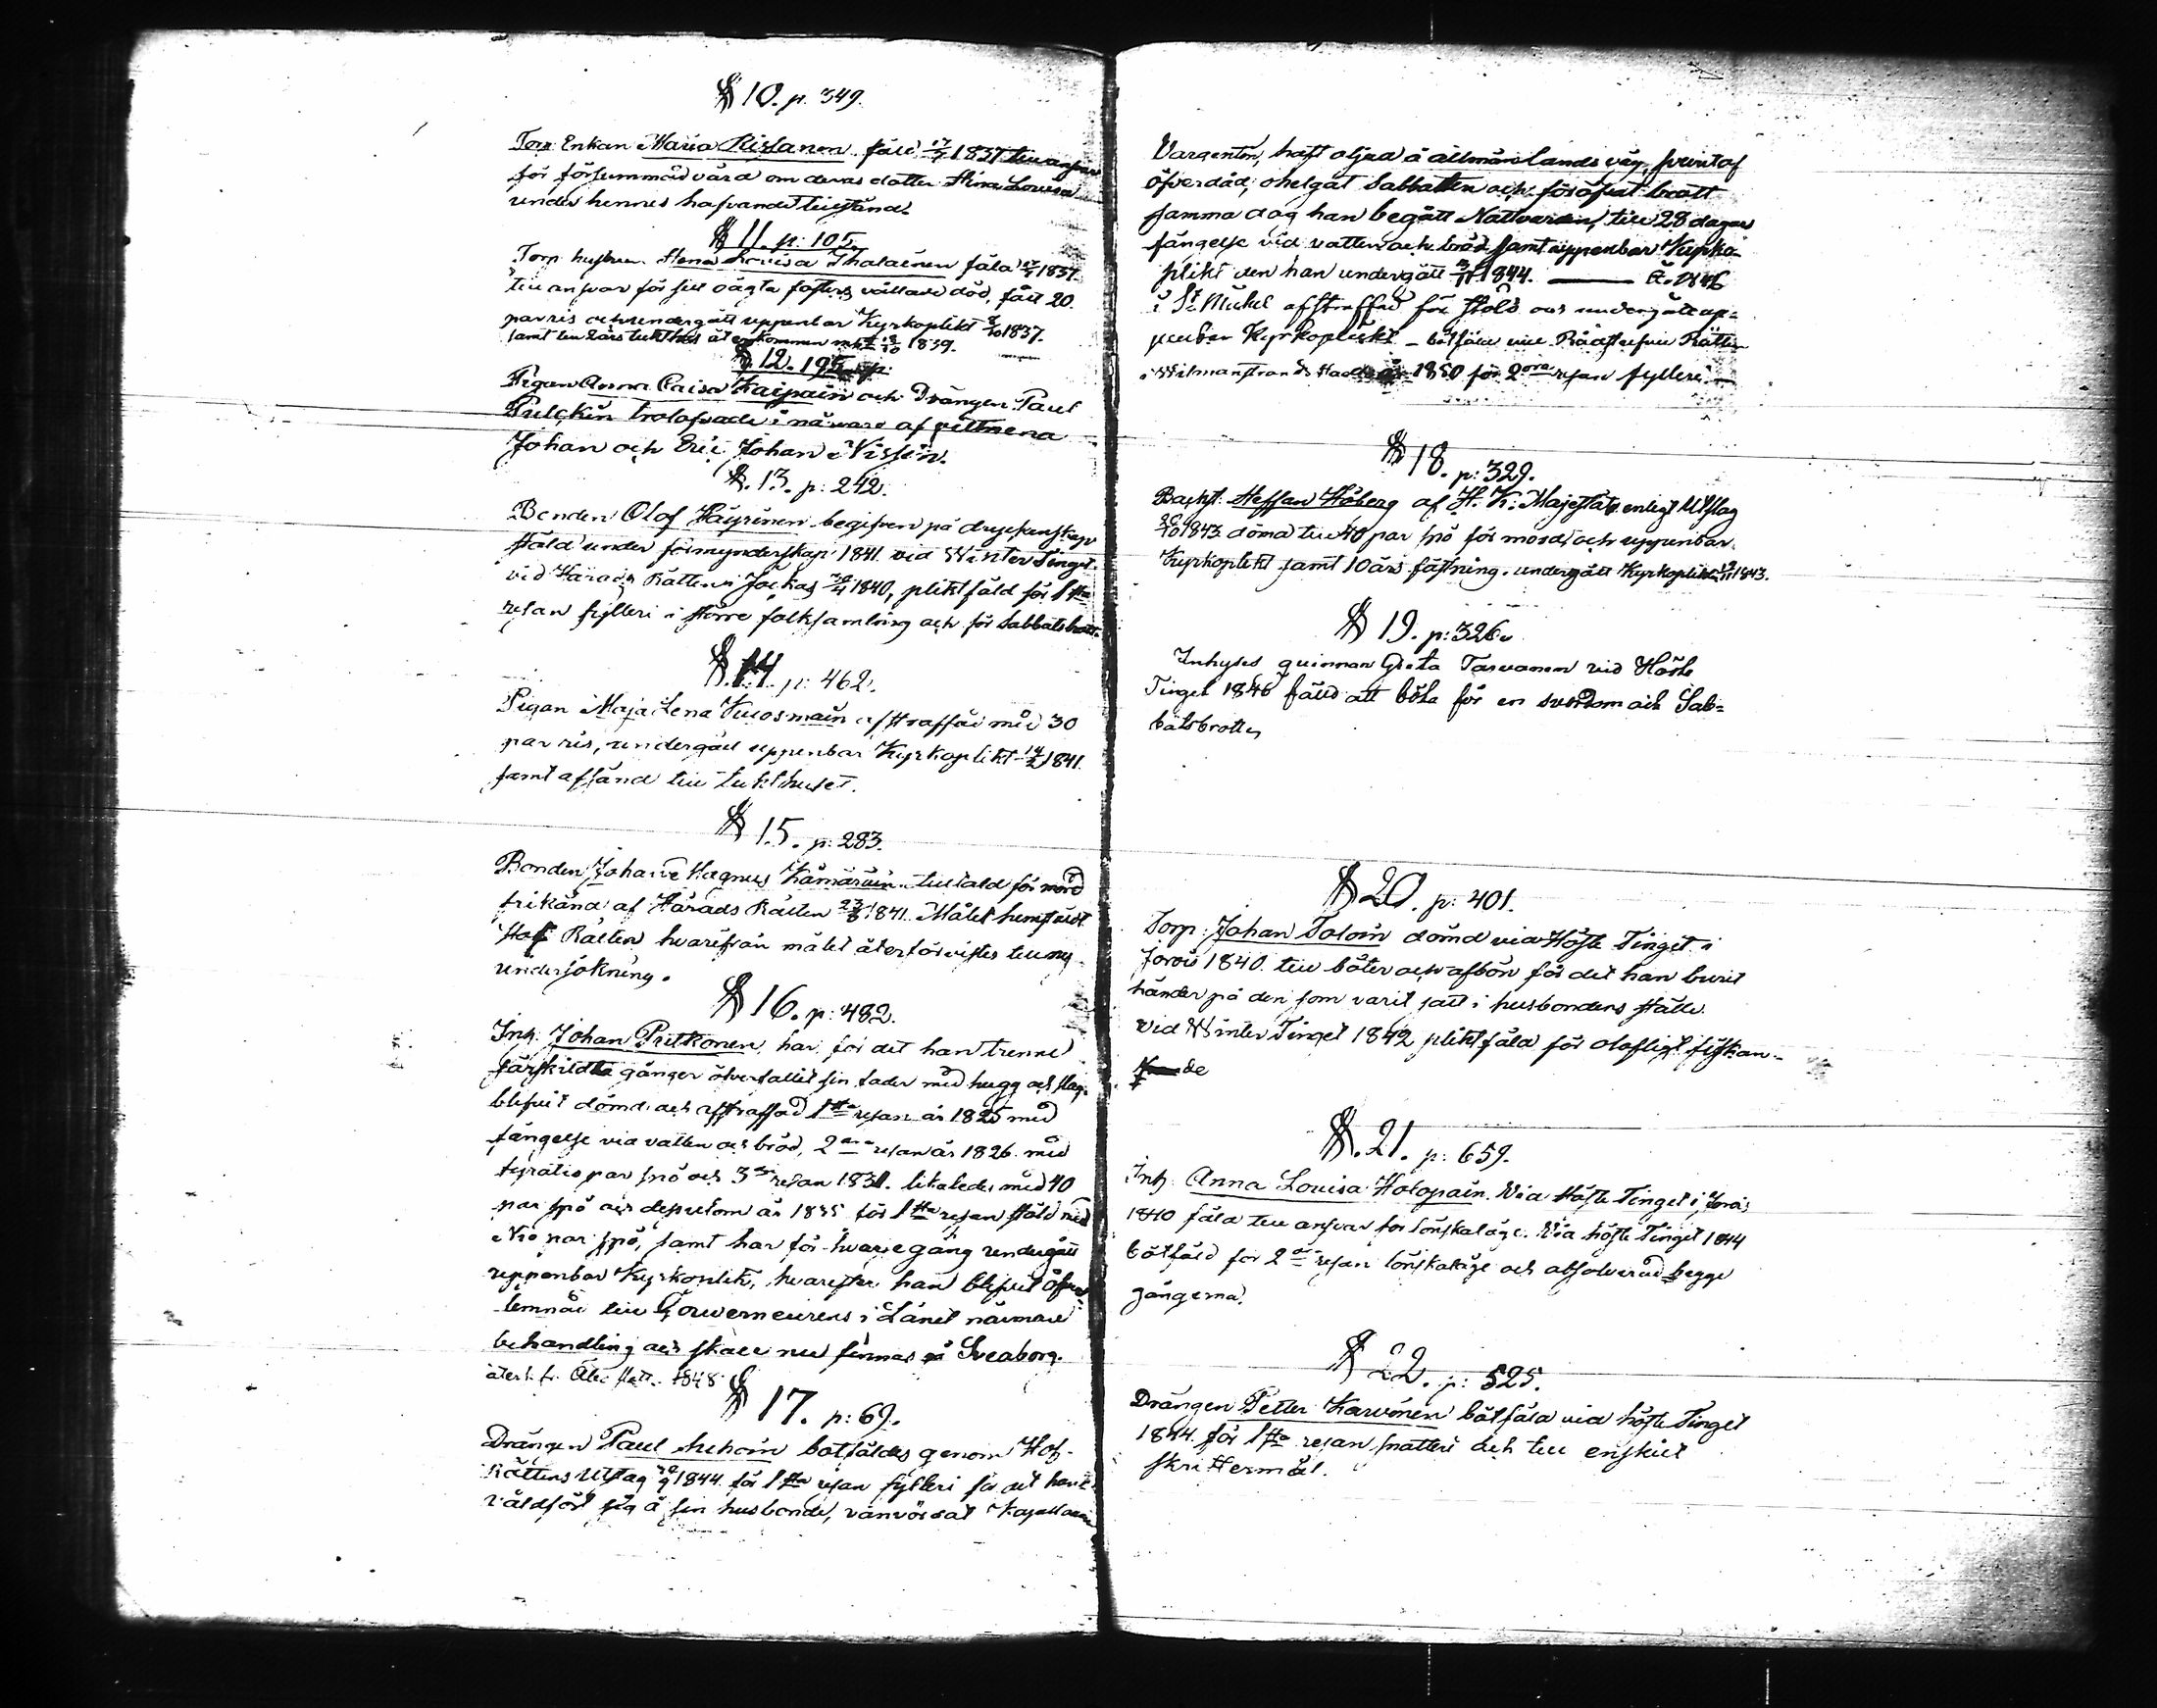 § 10. p. 349.
Torp Enkan Maria Rissanen fäld 17/7 1837 till ansvar
för försummad vård om deras dotter Stina Lovisa
under hennes hafvande tillstånd.
§ 11. p: 105.
Torp hustrun Lovisa Ihalainen fäld 1837.
till ansvar för sitt oägta fosters vållade död, fått 20.
par ris och undergått uppenbar Kyrkoplikt 1837.
samt till 2 års tukthus återkommen 1839.
§ 12. 195 p:
Pigan Anna Caisa Kaipain och Drängen Paul
Pulckin trolofvade i närvaro af vittnena
Johan och Eric Johan Nissin.
§. 13. p: 242.
Bonden Olof Häyrinen begifven på dryckenskap
stäld under förmynderskap 1841 vid Winter Tinget.
vid Härads Rätten i Jockas 1840, pliktfäld för 1sta
resan fylleri i större folksamling och för Sabbatsbrott.
§. 14 p: 462.
Pigan Maja Lena Kuosmain afstraffad med 30
par ris, undergått uppenbar Kyrkoplikt 14/2 1841.
samt afsänd till tukthuset.
§ 15. p: 283.
Bonden Johan Magnus Kämäräin tilltald för mord
frikänd af Härads Rätten 23/8 1841. Målet hemstäldt
Hof Rätten hvarifrån målet återförvistes till ny
undersökning.
§ 16. p: 482.
Inh: Johan Pulkonen, har för det han trenne
särskildta gånger öfverfallit sin fader med hugg och slag,
blifvit dömd och afstraffad 1sta resan år 1825 med
fängelse vid vatten och bröd, 2dra resan år 1826 med
fyratio par spö och 3dje resan 1831. likaledes med 40
par spö och dessutom år 1835 för 1sta resan stöld med
Nio par spö, samt har för hvarje gång undergått
uppenbar Kyrkoplikt, hvarefter han blifvit öfver
lemnad till Gouverneurens i Länet närmare
behandling och skall nu finnas på Sveaborg.
1848
§ 17. p: 69.
Drängen Paul Auhoin botfäldes genom Hof-
Rättens Utslag 1844 för 1sta resan fylleri för det han
våldfört sig å sin husbonde, vanvördat Kapellanen
Vargentin, haft oljud å allmän landsväg, svurit af
öfverdåd, ohelgat Sabbatten och föröfvat brott
samma dag han begått Nattvarden, till 28 dagars
fängelse vid vatten och bröd samt uppenbar Kyrko
plikt den han undergått 1844. År 1846
i St Michel afstraffad för stöld och undergått up=
penbar Kyrkoplikt - botfäld vid Rådstufvu Rätten
i Wilmanstrand 1850 för 2dra resan fylleri
§ 18. p: 329.
Backst: Steffan Höberg af H. K: Majestät enligt Utslag
1843 dömd till 40 par spö för mord och uppenbar
Kyrkoplikt samt 10 års fästning. undergått Kyrkoplikt 1843.
§ 19. p: 326.
Inhyses quinnan Greta Tarvanen vid Höste
Tinget 1846 fälld att böta för en svordom och Sab=
batsbrott
§ 20. p: 401.
Torp: Johan Toloin dömd vid Höste Tinget i
Jorois 1840. till böter och afbön för det han burit
händer på den som varit satt i husbondens ställe.
Vid Winter Tinget 1842 pliktfäld för olofligt fiskan-
de
§. 21. p: 659.
Inh: Anna Lovisa Holopain. Vid Höste Tinget i Jorois
1840 fäld till ansvar för lönskaläge. Vid höste Tinget 1844
bötfäld för 2dra resan lönskaläge och absolverad begge
gångerna.
§ 22. p: 525.
Drängen Petter Karvonen bötfäld vid höste Tinget
1844. för 1sta resan snatteri och till enskilt
skriftermål.